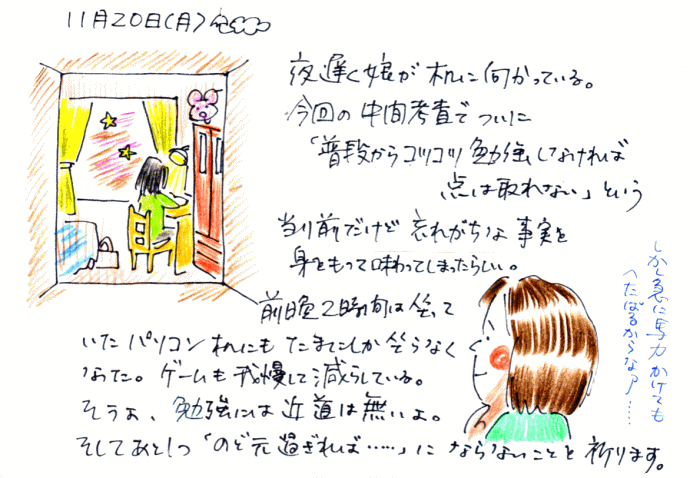 11月20日(月)
夜遅く娘が机に向かっている。
今回の中間考査でついに
「普段からコツコツ勉強しなければ
点は取れない」という
当り前だけど忘れがちな事実を
身をもって味わってしまったらしい。
前日迄2時間は坐って
いたパソコン机にもたまにしか坐らなく
なった。ゲームも我慢して減らしている。
そうよ、勉強には近道は無いよ。
そしてあと1つ「のど元過ぎれば……」に ならないことを祈ります。
しかし急に馬力かけても
へたばるからなァ……